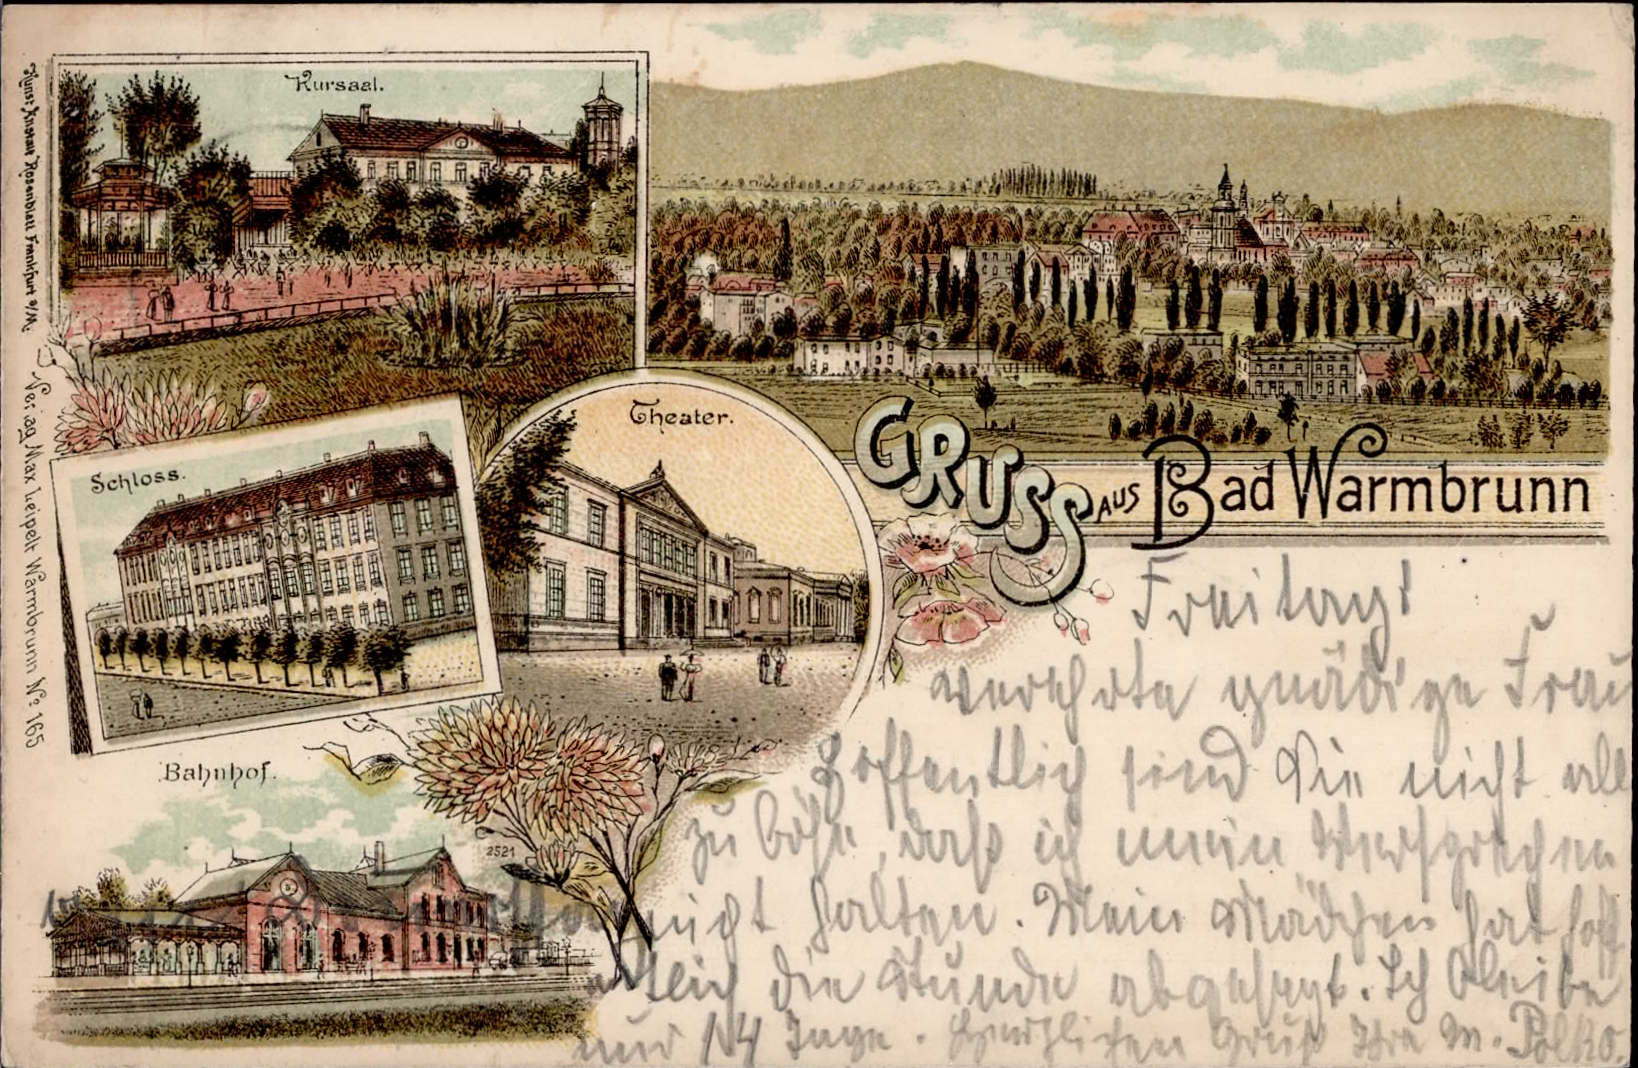 Kunst Anstalt Rosenblatt Frankfurt a/M.
Verlag Max Leipelt Warmbrunn No. 165
Kursaal.
Schloss.
Theater.
Bahnhof.
2521
GRUSS AUS Bad Warmbrunn
Freitag!
verehrte gnädige Frau
Hoffentlich sind Sie nicht all
zu böse, daß ich mein Versprechen
nicht halten. Mein Mädchen hat hoff
entlich die Stunde abgesagt. Ich bleibe
nur 14 Tage. Herzlichen Gruß Ihre M. Polko.